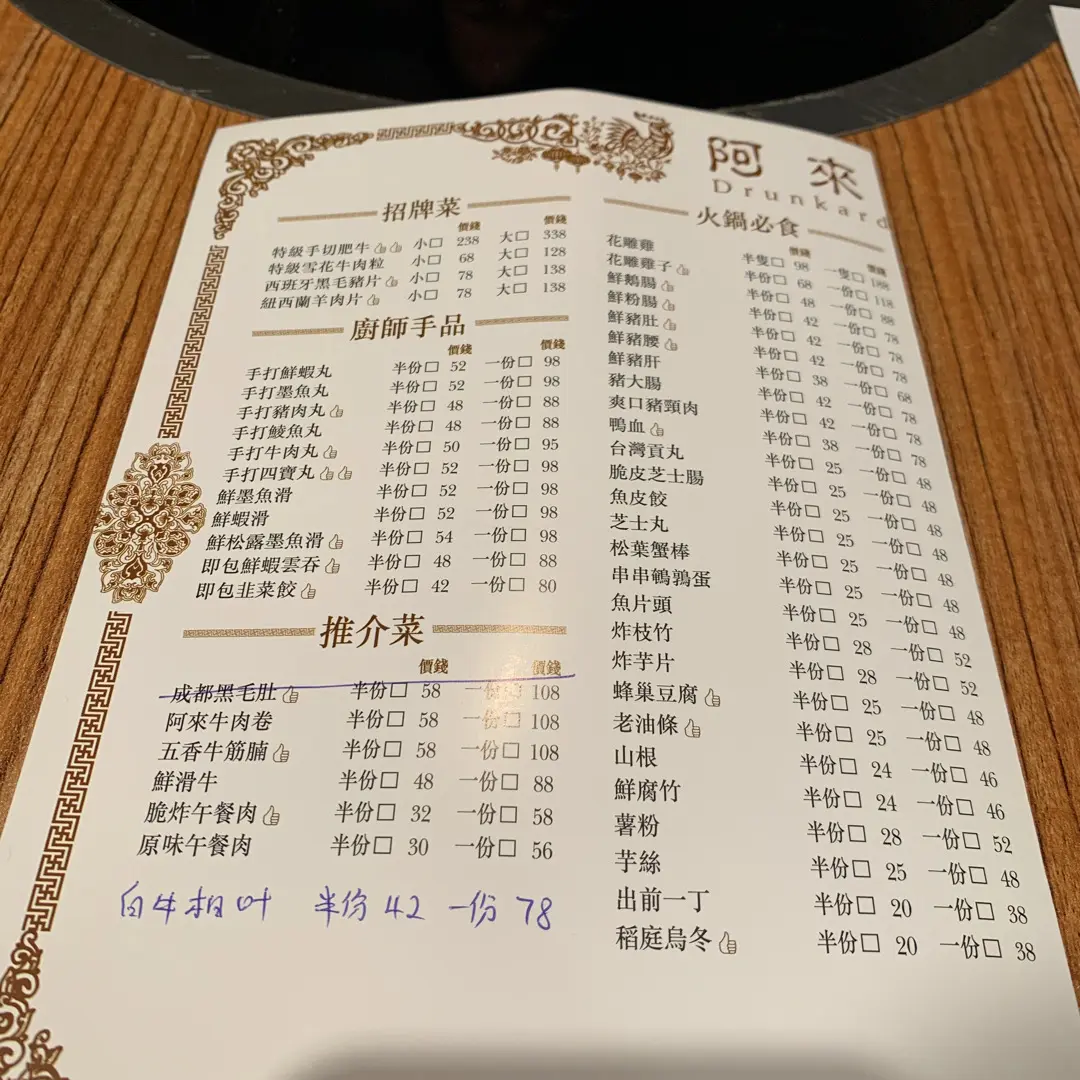 阿來
Drunkard
招牌菜
價錢 價錢
特級手切肥牛 小□ 238 大□ 338
特級雪花牛肉粒 小□ 68 大□ 128
西班牙黑毛豬片 小□ 78 大□ 138
紐西蘭羊肉片 小□ 78 大□ 138
廚師手品
價錢 價錢
手打鮮蝦丸 半份□ 52 一份□ 98
手打墨魚丸 半份□ 52 一份□ 98
手打豬肉丸 半份□ 48 一份□ 88
手打鯪魚丸 半份□ 48 一份□ 88
手打牛肉丸 半份□ 50 一份□ 95
手打四寶丸 半份□ 52 一份□ 98
鮮墨魚滑 半份□ 52 一份□ 98
鮮蝦滑 半份□ 52 一份□ 98
鮮松露墨魚滑 半份□ 54 一份□ 98
即包鮮蝦雲吞 半份□ 48 一份□ 88
即包韭菜餃 半份□ 42 一份□ 80
推介菜
價錢 價錢
成都黑毛肚 半份□ 58 一份□ 108
阿來牛肉卷 半份□ 58 一份□ 108
五香牛筋腩 半份□ 58 一份□ 108
鮮滑牛 半份□ 48 一份□ 88
脆炸午餐肉 半份□ 32 一份□ 58
原味午餐肉 半份□ 30 一份□ 56
白牛柏叶 半份 42 一份 78
火鍋必食
價錢 價錢
花雕雞 半隻□ 98 一隻□ 188
花雕雞子 半份□ 68 一份□ 118
鮮鵝腸 半份□ 48 一份□ 88
鮮粉腸 半份□ 42 一份□ 78
鮮豬肚 半份□ 42 一份□ 78
鮮豬腰 半份□ 42 一份□ 78
鮮豬肝 半份□ 38 一份□ 68
豬大腸 半份□ 42 一份□ 78
爽口豬頸肉 半份□ 42 一份□ 78
鴨血 半份□ 38 一份□ 78
台灣貢丸 半份□ 25 一份□ 48
脆皮芝士腸 半份□ 25 一份□ 48
魚皮餃 半份□ 25 一份□ 48
芝士丸 半份□ 25 一份□ 48
松葉蟹棒 半份□ 25 一份□ 48
串串鵪鶉蛋 半份□ 25 一份□ 48
魚片頭 半份□ 25 一份□ 48
炸枝竹 半份□ 28 一份□ 52
炸芋片 半份□ 28 一份□ 52
蜂巢豆腐 半份□ 25 一份□ 48
老油條 半份□ 25 一份□ 48
山根 半份□ 24 一份□ 46
鮮腐竹 半份□ 24 一份□ 46
薯粉 半份□ 28 一份□ 52
芋絲 半份□ 25 一份□ 48
出前一丁 半份□ 20 一份□ 38
稻庭烏冬 半份□ 20 一份□ 38